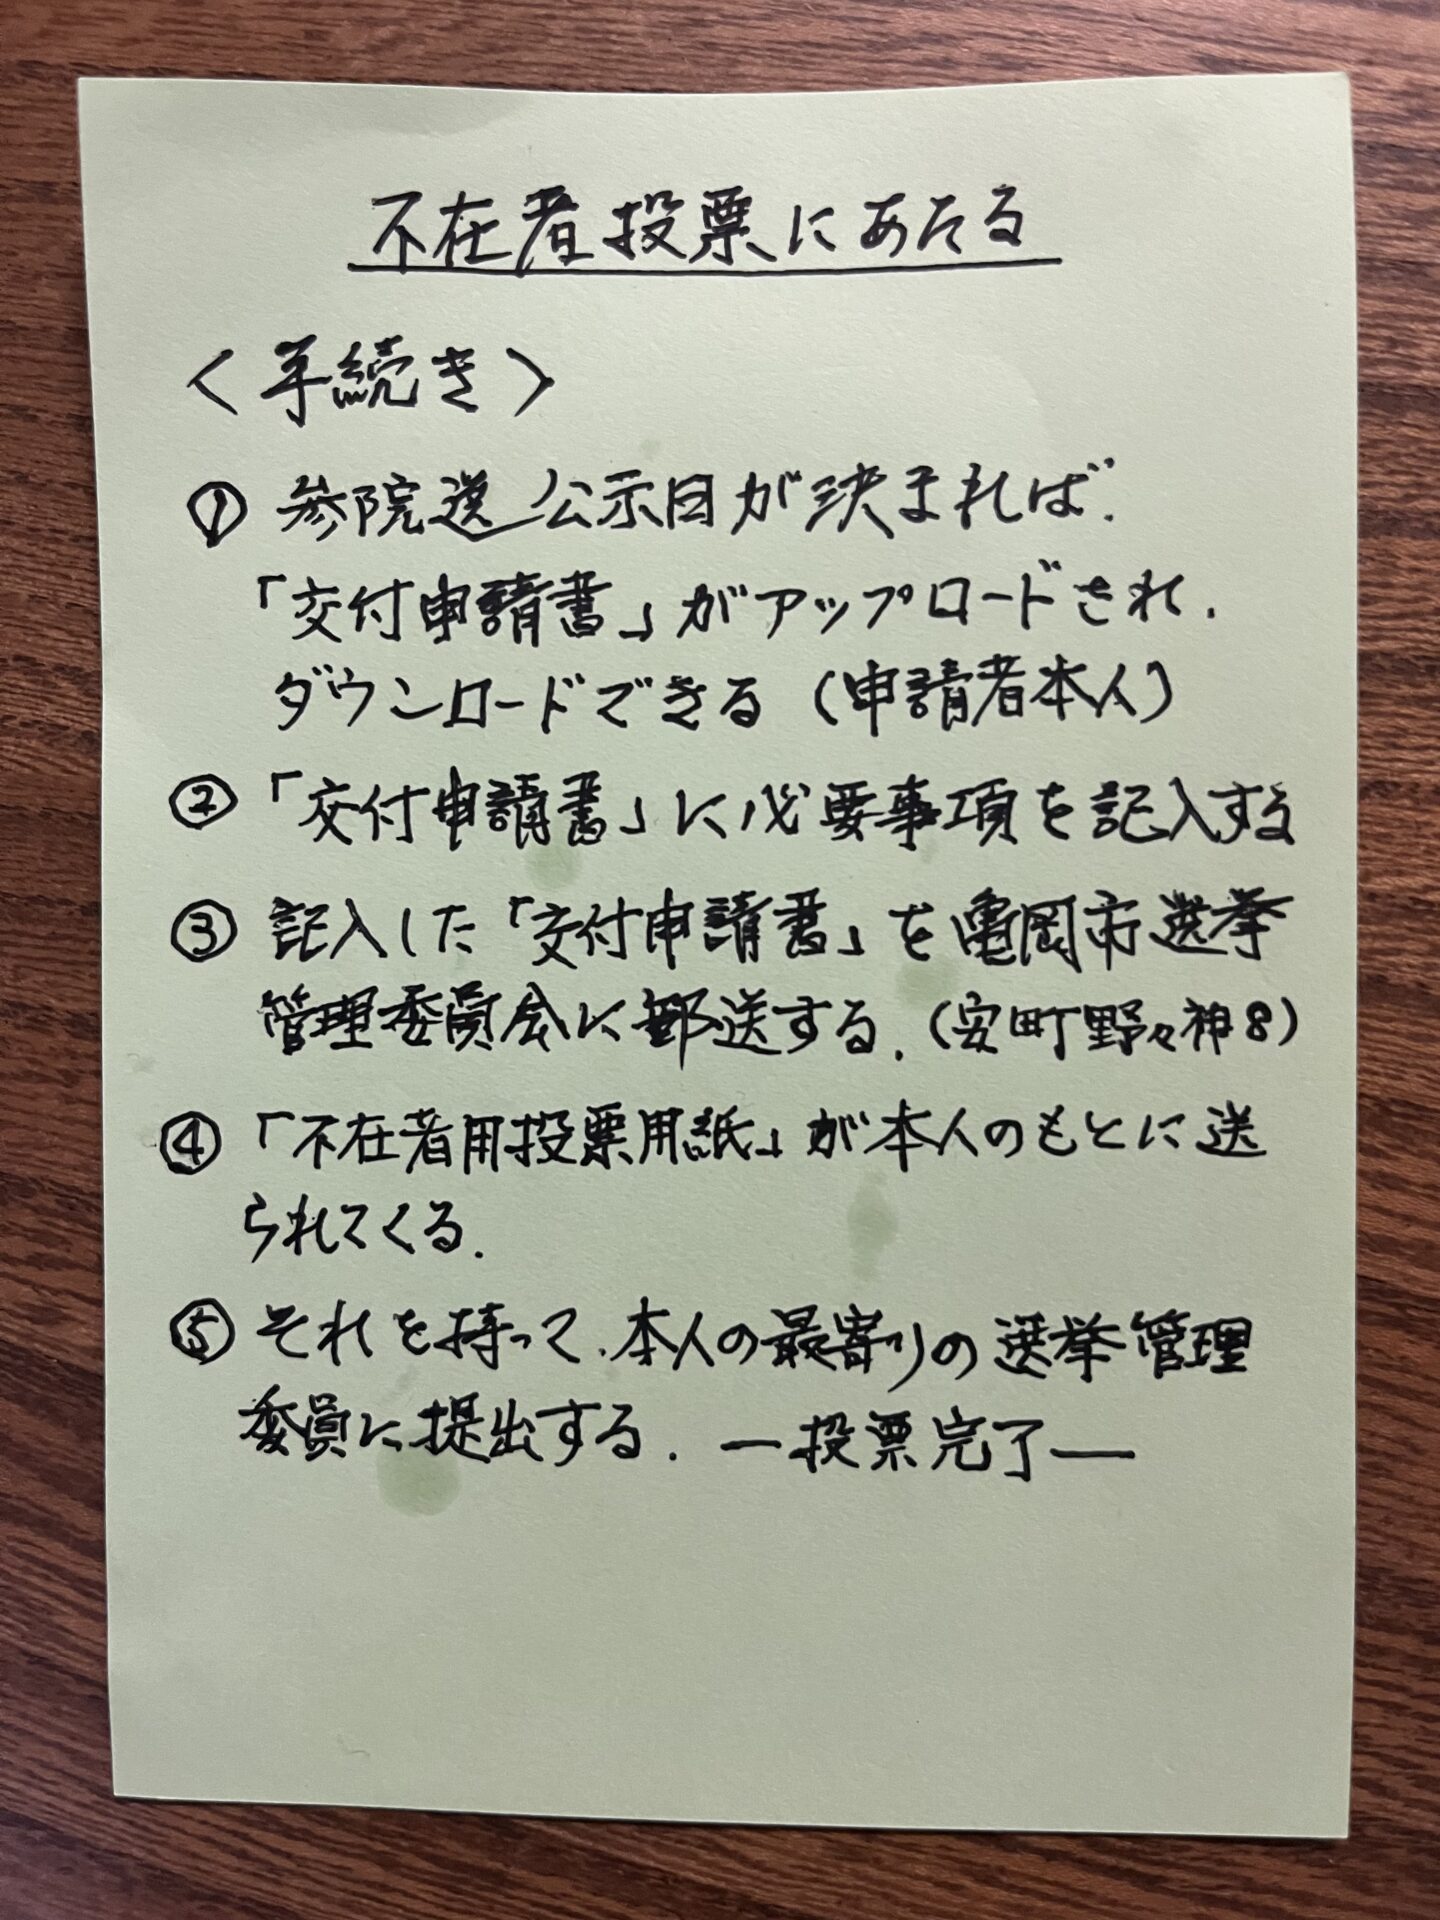 不在者投票にあたる
〈手続き〉
① 参院選公示日が決まれば、
「交付申請書」がアップロードされ、
ダウンロードできる(申請者本人)
②「交付申請書」に必要事項を記入する
③ 記入した「交付申請書」を亀岡市選挙
管理委員会に郵送する。(安町野々神8)
④「不在者用投票用紙」が本人のもとに送
られてくる。
⑤ それを持って、本人の最寄りの選挙管理
委員に提出する。―投票完了―